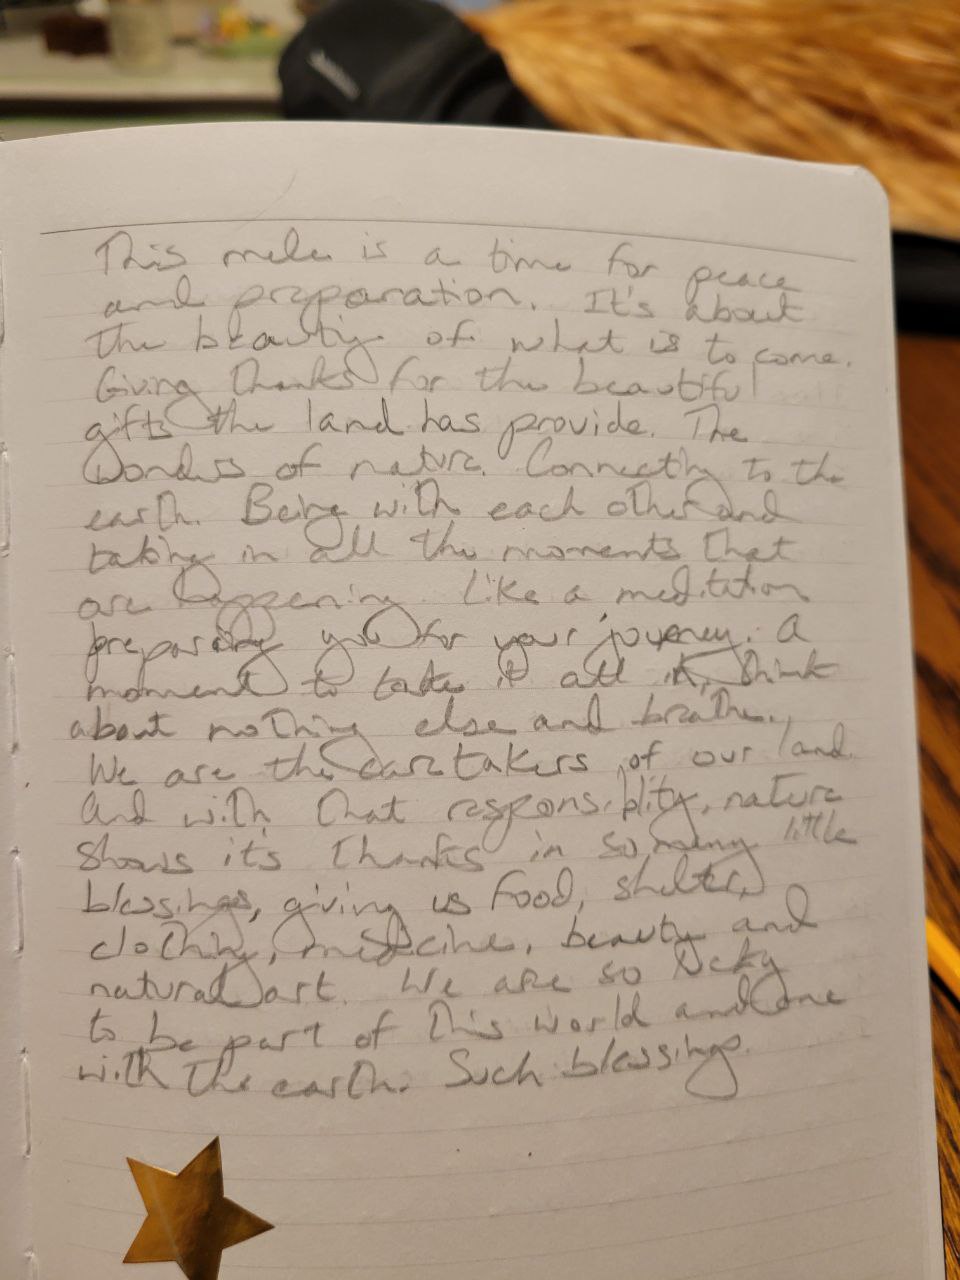 This mele is a time for peace
and preparation. It's about
the beauty of what is to come.
Giving thanks for the beautiful
gifts the land has provide. The
Wonders of nature. Connecting to the
earth. Being with each other and
taking in all the moments that
are happening. Like a meditation
preparing you for your journey. A
moment to take it all in, think
about nothing else and breathe.
We are the caretakers of our land.
And with that responsiblity, nature
shows it's thanks in so many little
blessings, giving us food, shelter,
clothing, medicine, beauty and
natural art. We are so lucky
to be part of this world and one
with the earth. Such blessings.